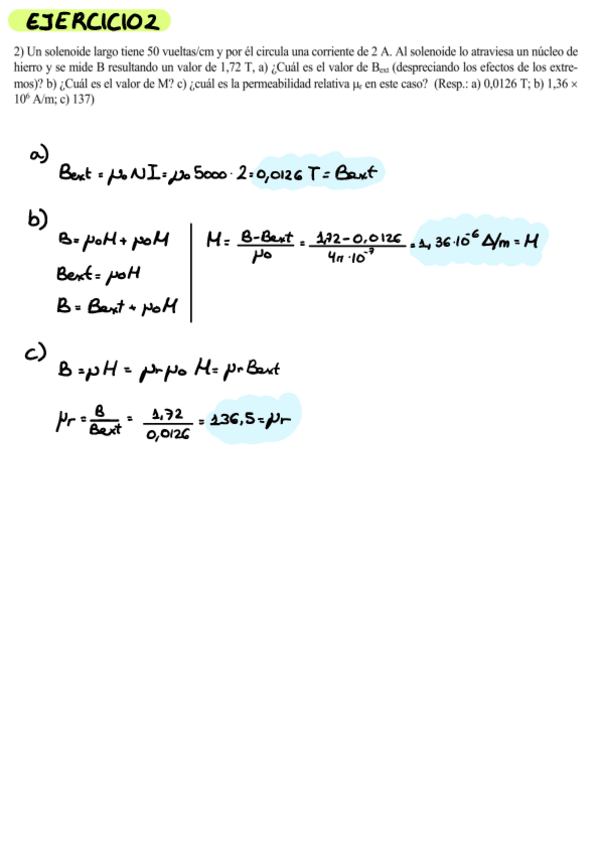 EJERCICIO 2
2) Un solenoide largo tiene 50 vueltas/cm y por él circula una corriente de 2 A. Al solenoide lo atraviesa un núcleo de
hierro y se mide B resultando un valor de 1,72 T, a) ¿Cuál es el valor de Bext (despreciando los efectos de los extre-
mos)? b) ¿Cuál es el valor de M? c) ¿cuál es la permeabilidad relativa μr en este caso? (Resp.: a) 0,0126 T; b) 1,36 ×
10⁶ A/m; c) 137)
a)
Bext = μ₀ N I = μ₀ 5000 · 2 = 0,0126 T = Bext
b)
B = μ₀H + μ₀M
Bext = μ₀H
B = Bext + μ₀M
M = B - Bext / μ₀ = 1,72 - 0,0126 / 4π · 10⁻⁷ = 1,36 · 10⁻⁶ A/m = M
c)
B = μH = μr μ₀ H = μr Bext
μr = B / Bext = 1,72 / 0,0126 = 136,5 = μr